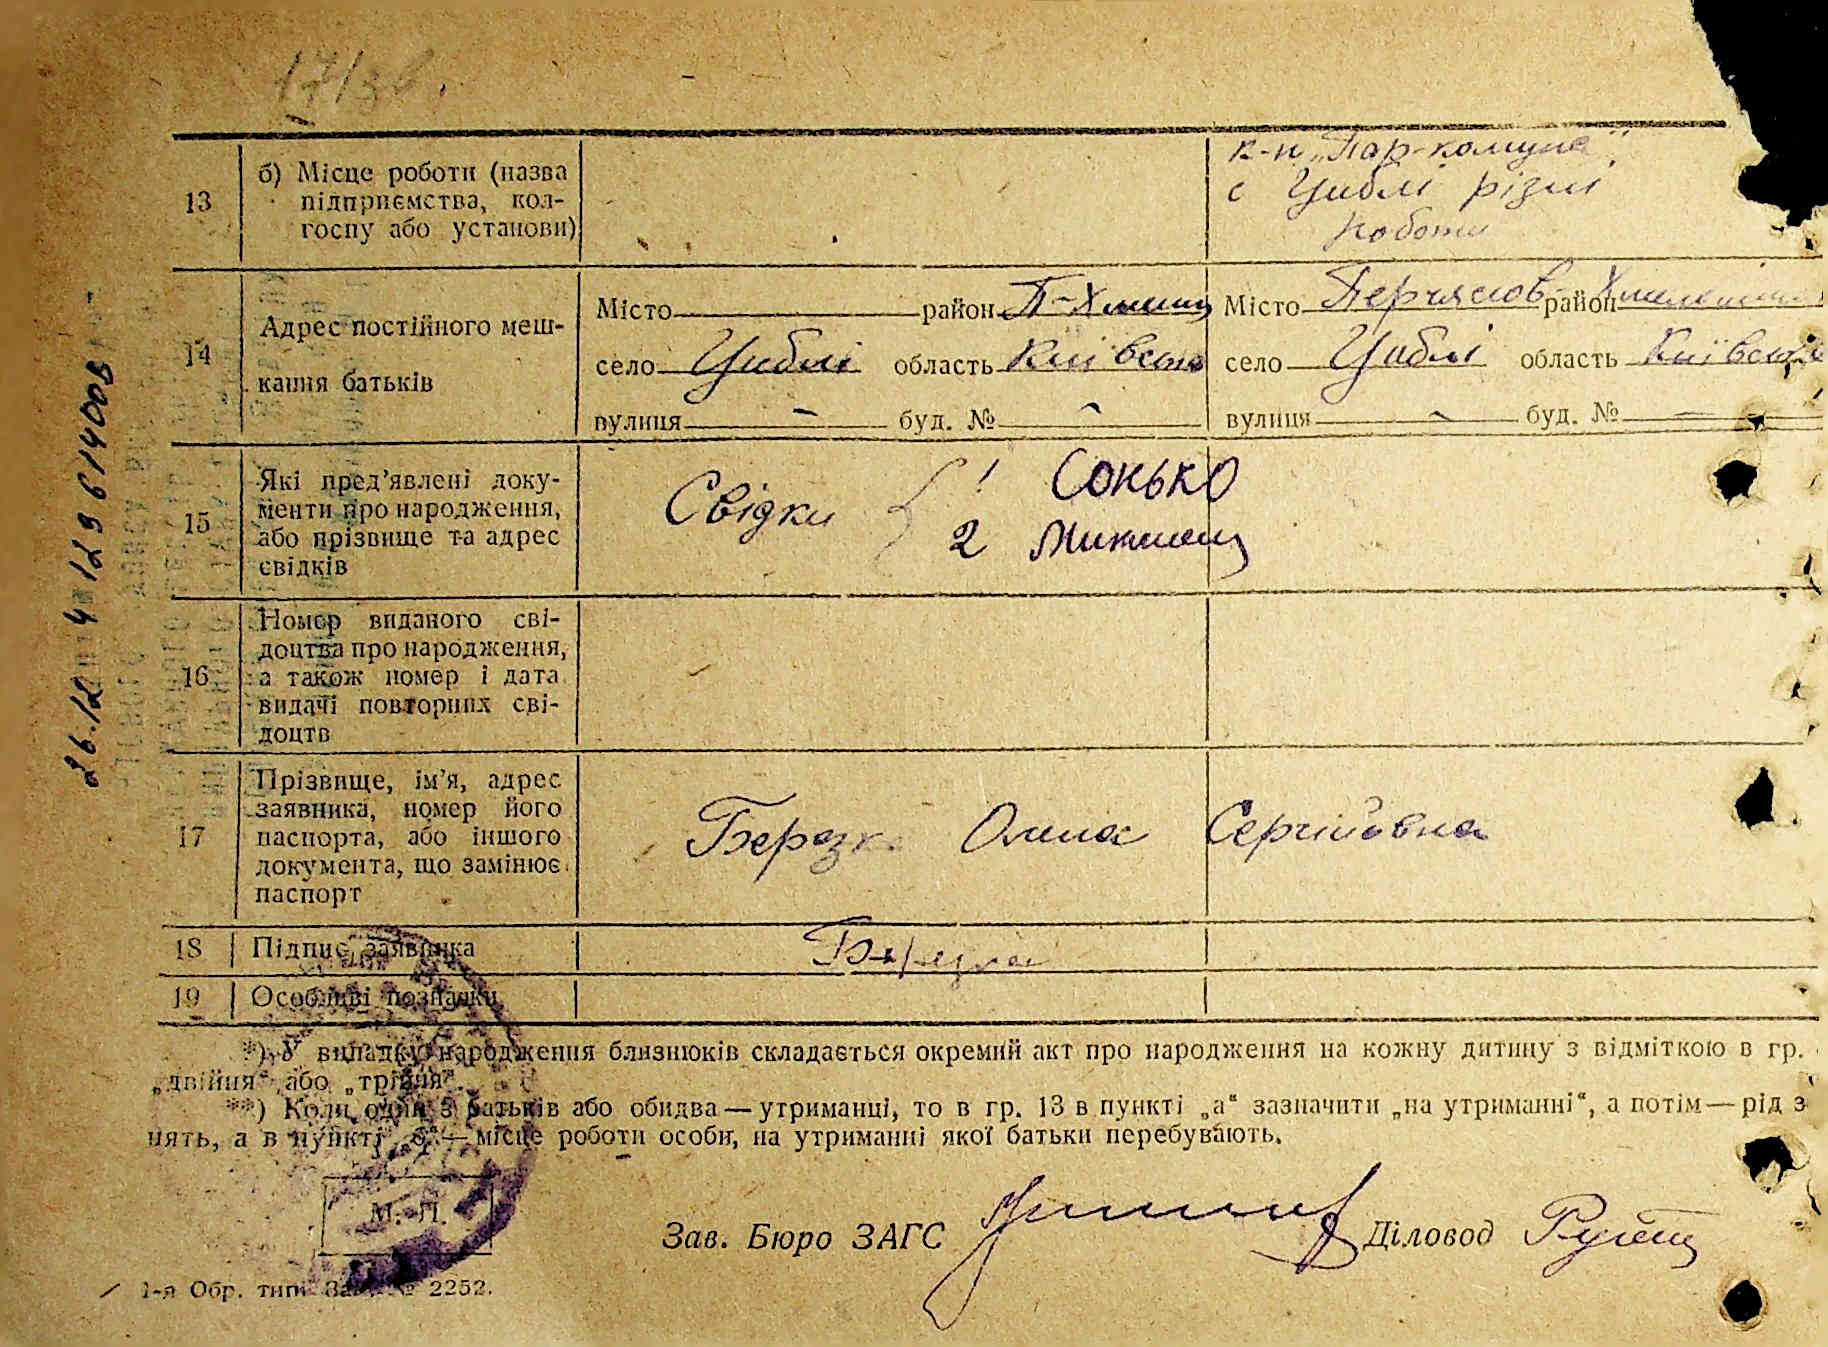 17/36.
13
б) Місце роботи (назва
підприємства, кол-
госпу або установи)
к-п „Пар-комуна"
с Циблі різні
роботи
14
Адрес постійного меш-
кання батьків
Місто район П-Хмельн
село Циблі область Київська
вулиця – буд. № –
Місто Переяслов район Хмельни
село Циблі область Київська
вулиця – буд. № –
15
Які пред'явлені доку-
менти про народження,
або прізвище та адрес
свідків
Свідки { 1 Сонько
2
16
Номер виданого сві-
доцтва про народження,
а також номер і дата
видачі повторних сві-
доцтв
17
Прізвище, ім'я, адрес
заявника, номер його
паспорта, або іншого
документа, що замінює
паспорт
Березка Олена Сергіївна
18 Підпис заявника
Березка
19 Особливі познадки
*) У випадку народження близнюків складається окремий акт про народження на кожну дитину з відміткою в гр.
„двійня“ або „трійня“.
**) Коли один з батьків або обидва — утриманці, то в гр. 13 в пункті „а“ зазначити „на утриманні“, а потім — рід з
нять, а в пункті „б“ — місце роботи особи, на утриманні якої батьки перебувають.
М. П.
Зав. Бюро ЗАГС
Діловод
1-я Обр. тип. Зак. № 2252.